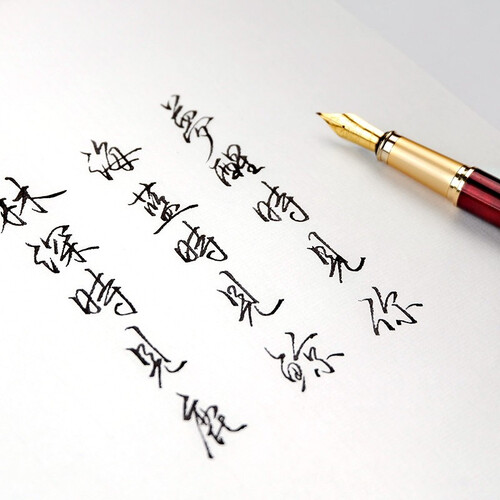 林深時見鹿
海藍時見鯨
夢醒時見你